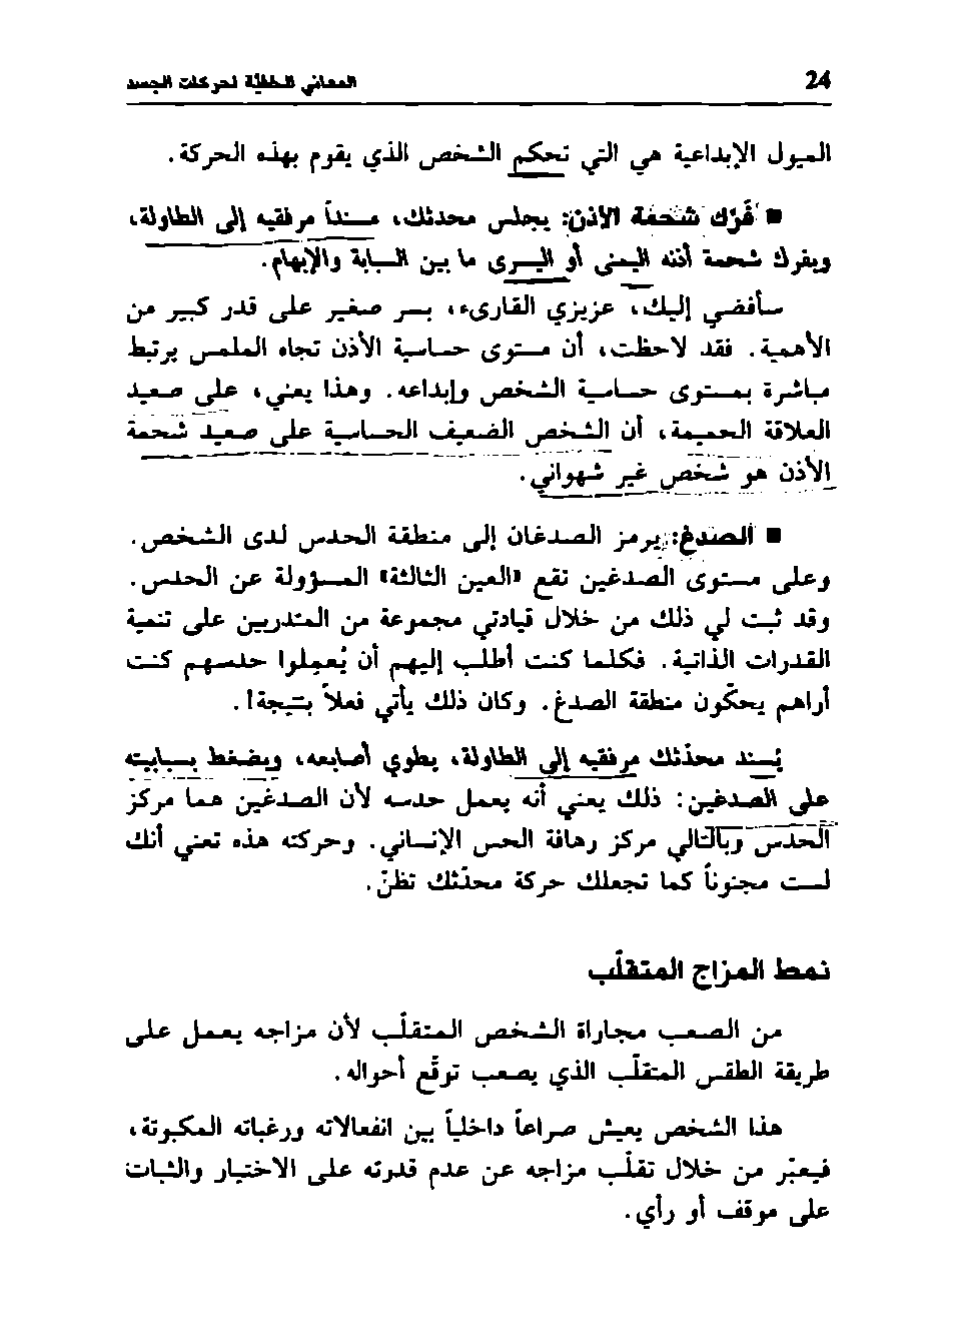 24
المعاني الخفيّة لحركات الجسد
الميول الإبداعية هي التي تحكم الشخص الذي يقوم بهذه الحركة.
■ فَرْك شحمة الأذن: يجلس محدثك، مسنداً مرفقيه إلى الطاولة،
ويفرك شحمة أذنه اليمنى أو اليسرى ما بين السبابة والإبهام.
سأفضي إليك، عزيزي القارىء، بسر صغير على قدر كبير من
الأهمية. فقد لاحظت، أن مستوى حساسية الأذن تجاه الملمس يرتبط
مباشرة بمستوى حساسية الشخص وإبداعه. وهذا يعني، على صعيد
العلاقة الحميمة، أن الشخص الضعيف الحساسية على صعيد شحمة
الأذن هو شخص غير شهواني.
■ الصدغ: يرمز الصدغان إلى منطقة الحدس لدى الشخص.
وعلى مستوى الصدغين تقع «العين الثالثة» المسؤولة عن الحدس.
وقد ثبت لي ذلك من خلال قيادتي مجموعة من المتدربين على تنمية
القدرات الذاتية. فكلما كنت أطلب إليهم أن يُعمِلوا حدسهم كنت
أراهم يحكّون منطقة الصدغ. وكان ذلك يأتي فعلاً بنتيجة!.
يُسند محدّثك مرفقيه إلى الطاولة، يطوي أصابعه، ويضغط بسبابيته
على الصدغين: ذلك يعني أنه يعمل حدسه لأن الصدغين هما مركز
الحدس وبالتالي مركز رهافة الحس الإنساني. وحركته هذه تعني أنك
لست مجنوناً كما تجعلك حركة محدّثك تظنّ.
نمط المزاج المتقلّب
من الصعب مجاراة الشخص المتقلّب لأن مزاجه يعمل على
طريقة الطقس المتقلّب الذي يصعب توقّع أحواله.
هذا الشخص يعيش صراعاً داخلياً بين انفعالاته ورغباته المكبوتة،
فيعبّر من خلال تقلّب مزاجه عن عدم قدرته على الاختيار والثبات
على موقف أو رأي.